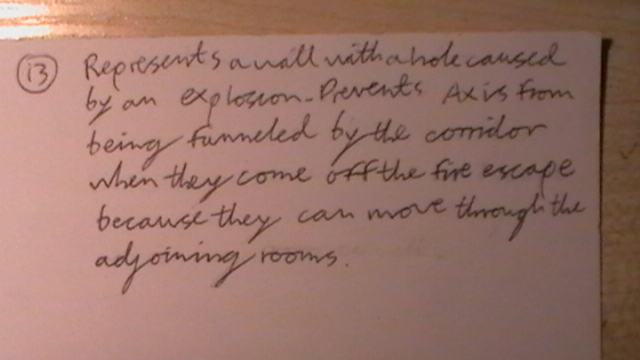 13 Represents a wall with a hole caused
by an explosion. Prevents Axis from
being funneled by the corridor
when they come off the fire escape
because they can move through the
adjoining rooms.